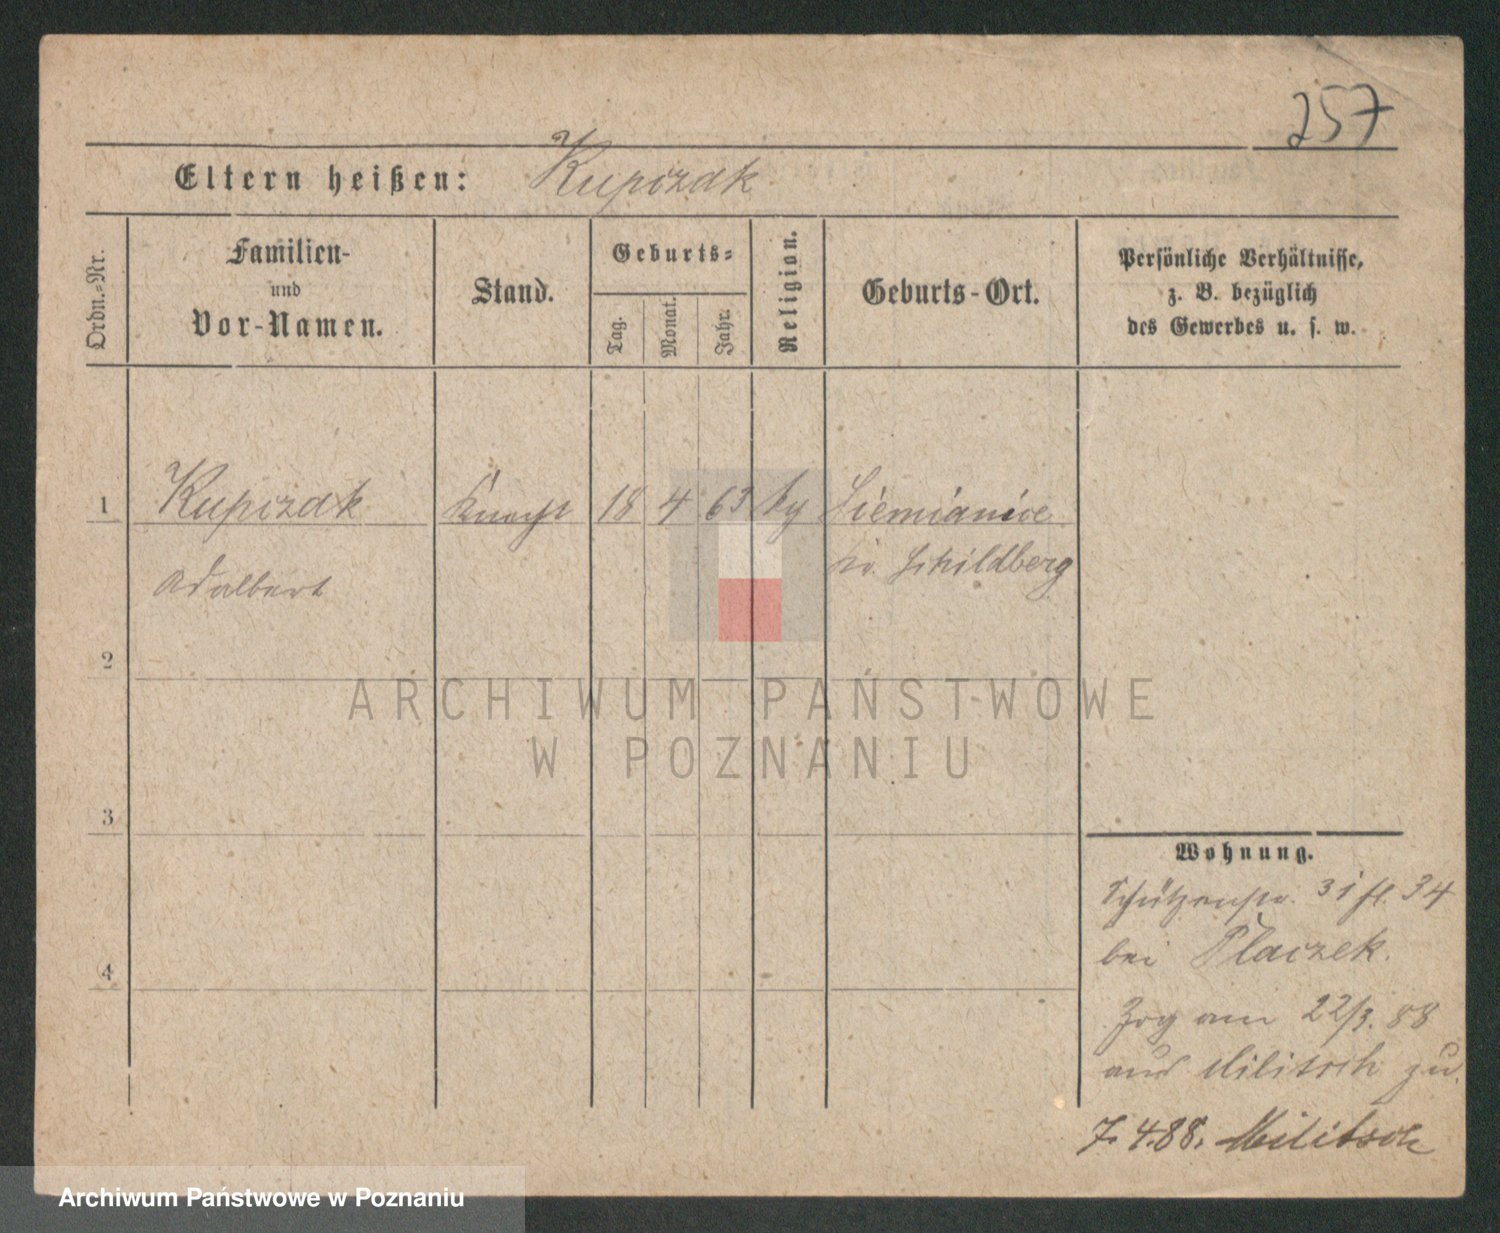 257
Eltern heißen: Kupczak
Ordn.-Nr.
Familien-
und
Vor-Namen.
Stand.
Geburts-
Tag.
Monat.
Jahr.
Religion.
Geburts-Ort.
Persönliche Verhältnisse,
z. B. bezüglich
des Gewerbes u. s. w.
1 Kupczak Knecht 18 4 63 Siemianice
Adalbert Kr. Schildberg
2
ARCHIWUM PAŃSTWOWE
W POZNANIU
3
Wohnung.
Schützenstr. 31 34
bei Placzek.
4
Zog am 22/3. 88
aus Militsch zu.
7. 4. 88. Militsch
Archiwum Państwowe w Poznaniu